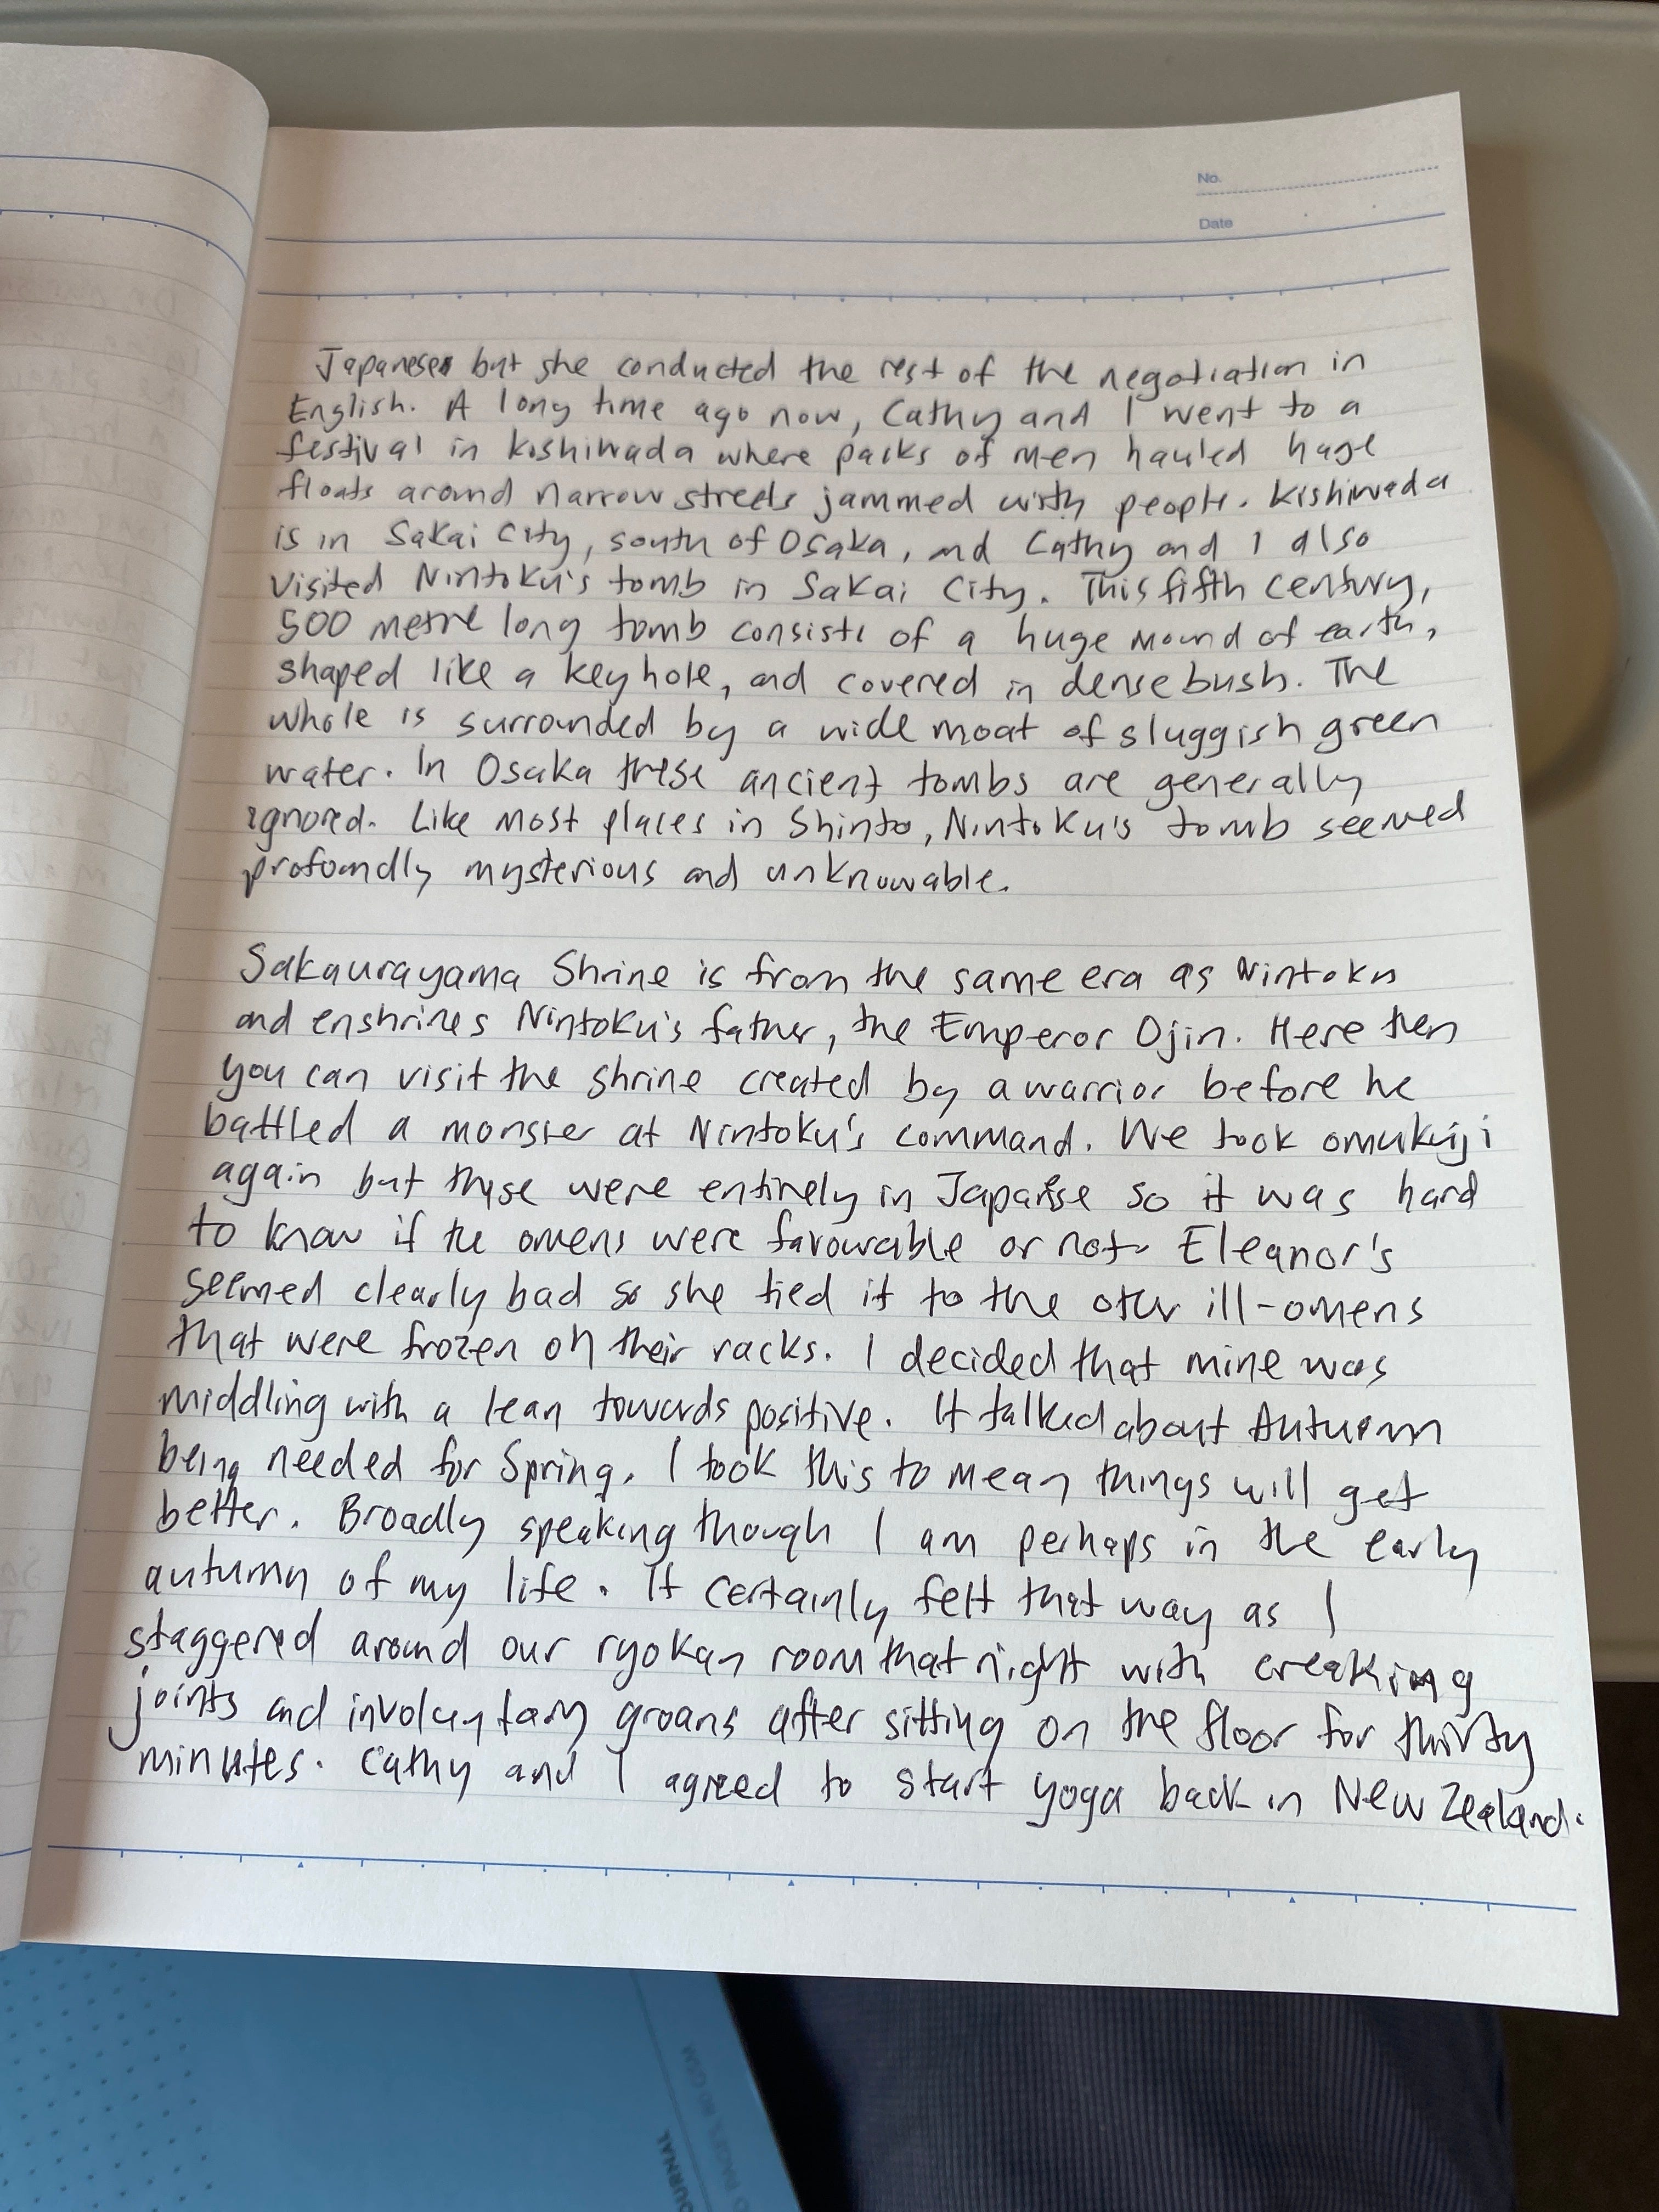 No.
Date
Japanese but she conducted the rest of the negotiation in
English. A long time ago now, Cathy and I went to a
festival in Kishiwada where packs of men hauled huge
floats around narrow streets jammed with people. Kishiwada
is in Sakai City, south of Osaka, and Cathy and I also
visited Nintoku's tomb in Sakai City. This fifth century,
500 metre long tomb consists of a huge mound of earth,
shaped like a keyhole, and covered in dense bush. The
whole is surrounded by a wide moat of sluggish green
water. In Osaka these ancient tombs are generally
ignored. Like most places in Shinto, Nintoku's tomb seemed
profoundly mysterious and unknowable.
Sakaurayama Shrine is from the same era as Nintoku
and enshrines Nintoku's father, the Emperor Ojin. Here then
you can visit the shrine created by a warrior before he
battled a monster at Nintoku's command. We took omukuji
again but these were entirely in Japanese so it was hard
to know if the omens were favourable or not. Eleanor's
seemed clearly bad so she tied it to the other ill-omens
that were frozen on their racks. I decided that mine was
middling with a lean towards positive. It talked about Autumn
being needed for Spring. I took this to mean things will get
better. Broadly speaking though I am perhaps in the early
autumn of my life. It certainly felt that way as I
staggered around our ryokan room that night with creaking
joints and involuntary groans after sitting on the floor for thirty
minutes. Cathy and I agreed to start yoga back in New Zealand.